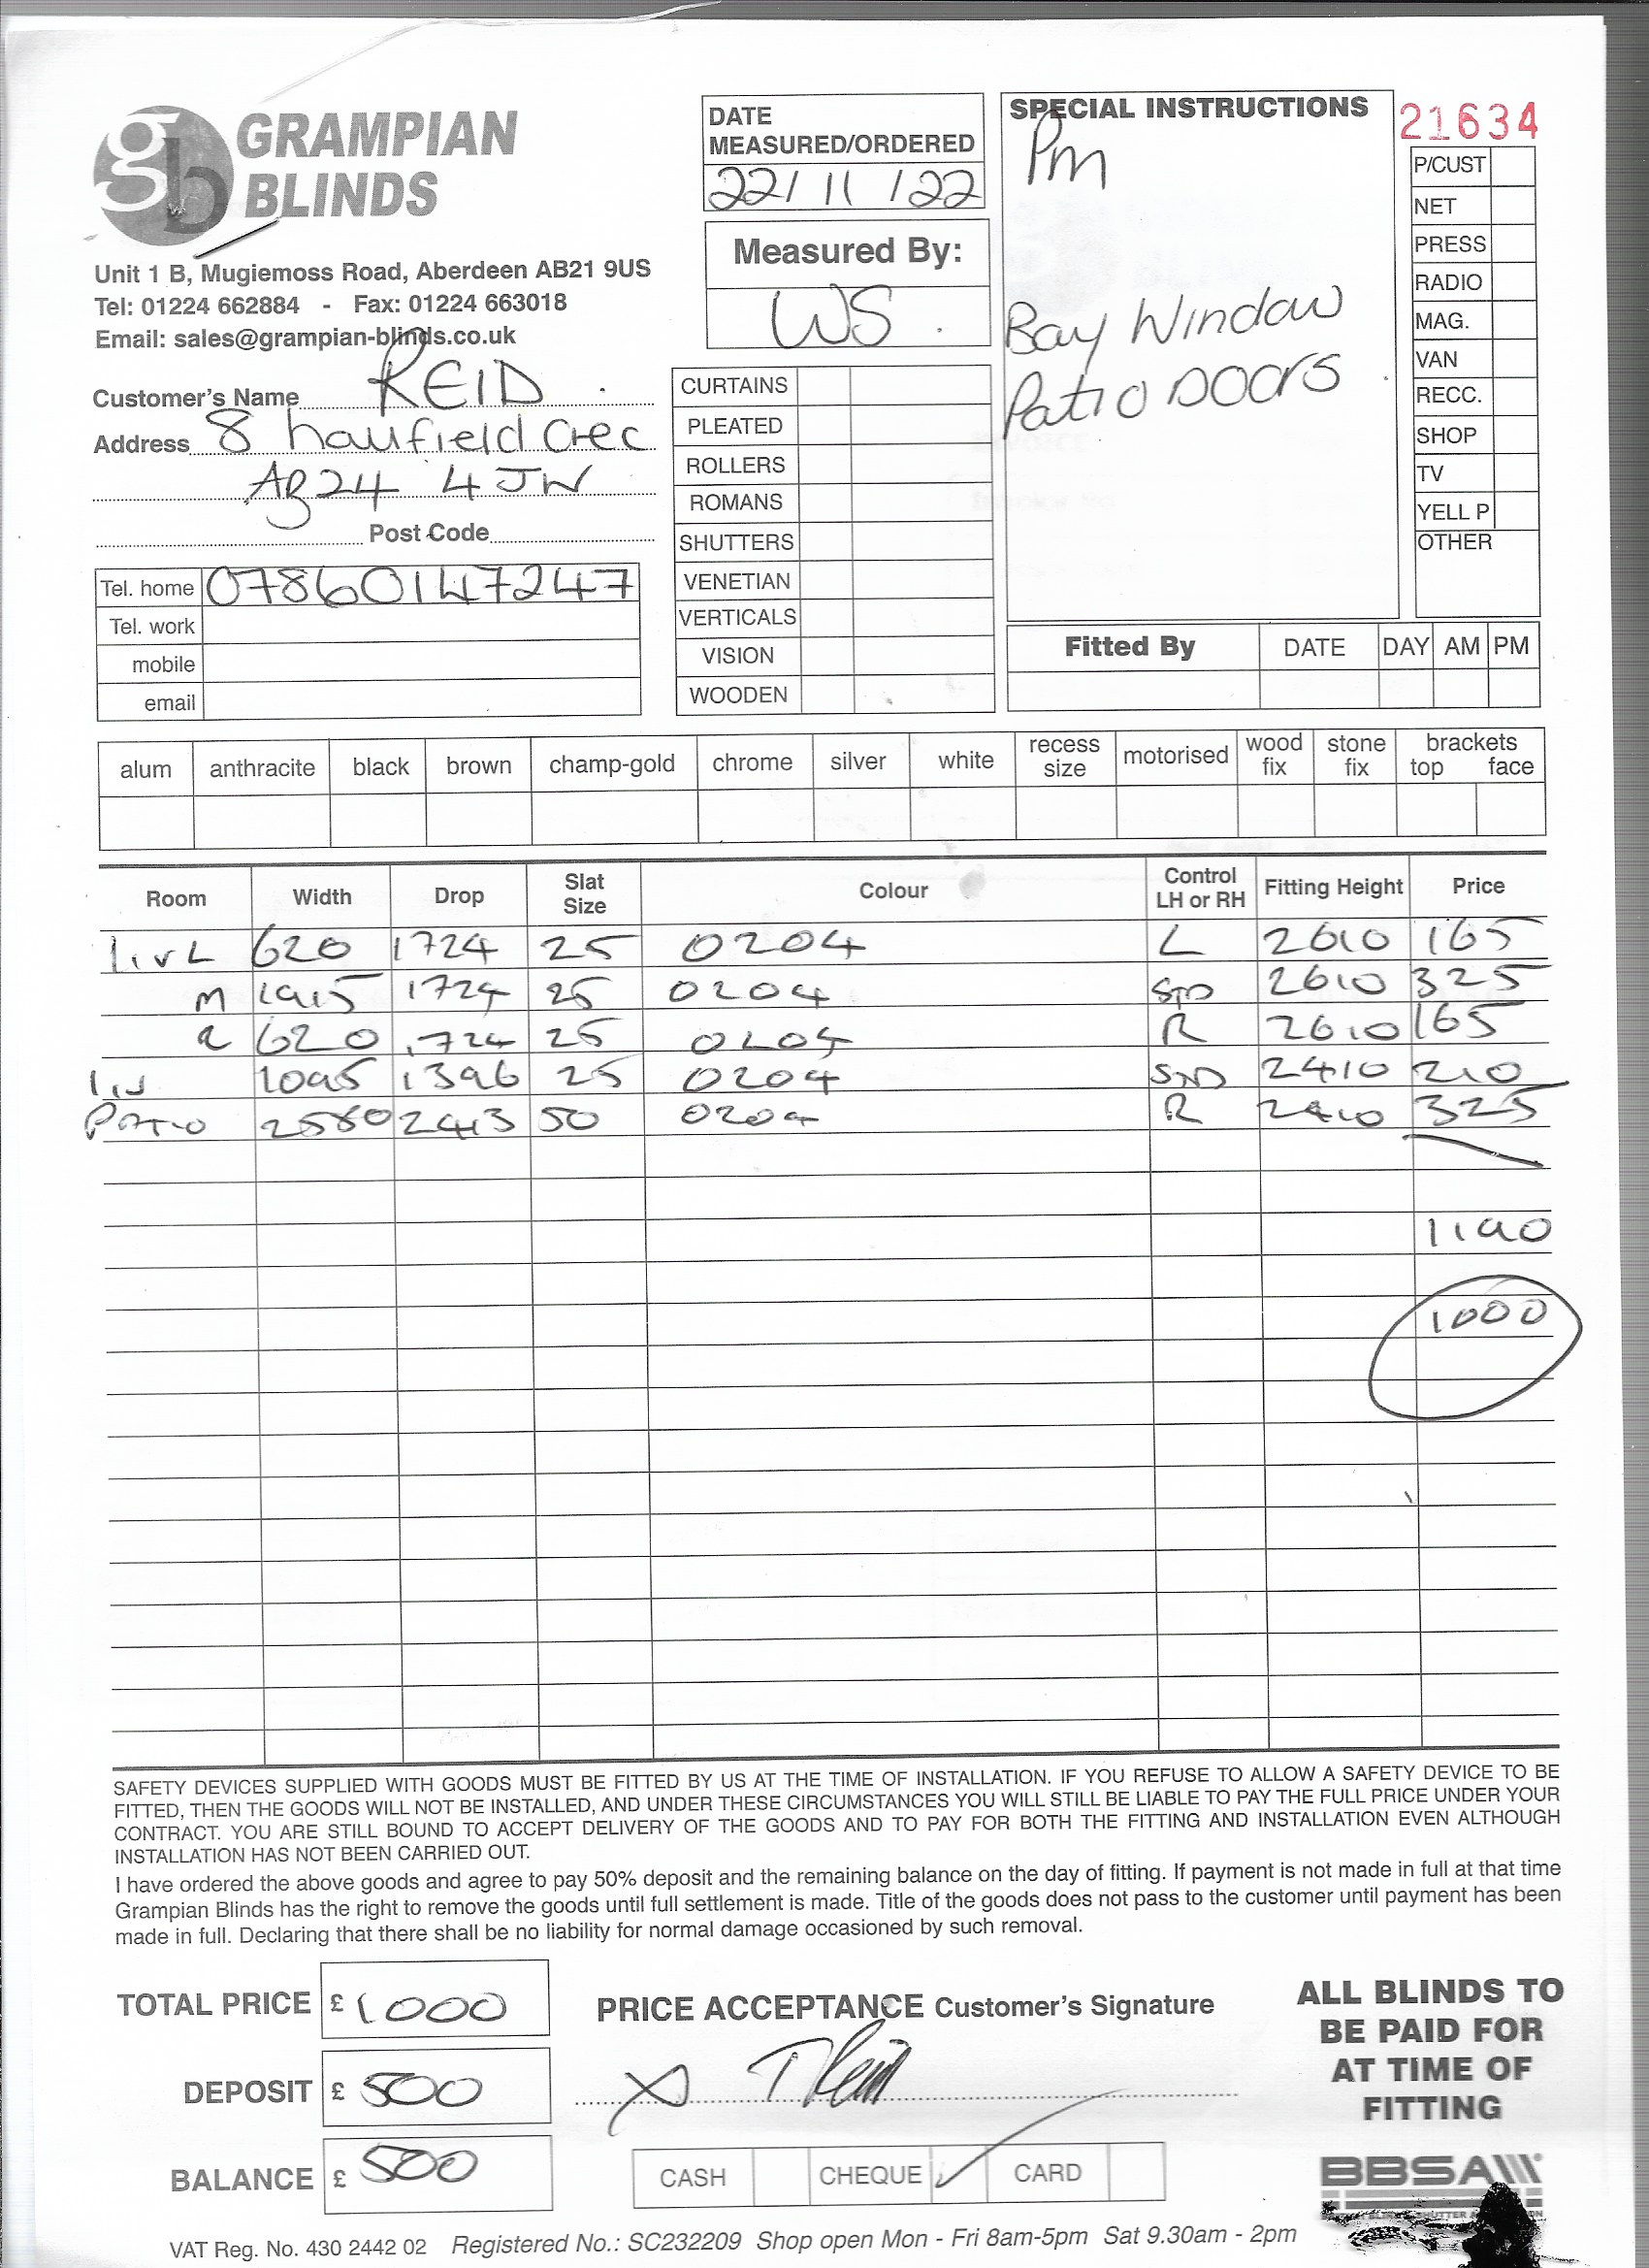 GRAMPIAN
BLINDS
Unit 1 B, Mugiemoss Road, Aberdeen AB21 9US
Tel: 01224 662884 - Fax: 01224 663018
Email: sales@grampian-blinds.co.uk
Customer's Name REID
Address 8 hayfield Crec
AB24 4JW
Post Code
Tel. home 07860147247
Tel. work
mobile
email
DATE
MEASURED/ORDERED
22/11/22
Measured By:
WS
CURTAINS
PLEATED
ROLLERS
ROMANS
SHUTTERS
VENETIAN
VERTICALS
VISION
WOODEN
SPECIAL INSTRUCTIONS
Pm
Bay Window
Patio Doors
21634
P/CUST
NET
PRESS
RADIO
MAG.
VAN
RECC.
SHOP
TV
YELL P
OTHER
Fitted By DATE DAY AM PM
alum anthracite black brown champ-gold chrome silver white recess size motorised wood fix stone fix brackets top face
Room Width Drop Slat Size Colour Control LH or RH Fitting Height Price
Liv L 620 1724 25 0204 L 2610 165
M 1915 1724 25 0204 STD 2610 325
R 620 1724 25 0204 R 2610 165
Liv 1095 1396 25 0204 STD 2410 210
Patio 2580 2413 50 0204 R 2410 325
1190
1000
SAFETY DEVICES SUPPLIED WITH GOODS MUST BE FITTED BY US AT THE TIME OF INSTALLATION. IF YOU REFUSE TO ALLOW A SAFETY DEVICE TO BE
FITTED, THEN THE GOODS WILL NOT BE INSTALLED, AND UNDER THESE CIRCUMSTANCES YOU WILL STILL BE LIABLE TO PAY THE FULL PRICE UNDER YOUR
CONTRACT. YOU ARE STILL BOUND TO ACCEPT DELIVERY OF THE GOODS AND TO PAY FOR BOTH THE FITTING AND INSTALLATION EVEN ALTHOUGH
INSTALLATION HAS NOT BEEN CARRIED OUT.
I have ordered the above goods and agree to pay 50% deposit and the remaining balance on the day of fitting. If payment is not made in full at that time
Grampian Blinds has the right to remove the goods until full settlement is made. Title of the goods does not pass to the customer until payment has been
made in full. Declaring that there shall be no liability for normal damage occasioned by such removal.
TOTAL PRICE £ 1000
DEPOSIT £ 500
BALANCE £ 500
PRICE ACCEPTANCE Customer's Signature
X T Reid
CASH CHEQUE ✓ CARD
ALL BLINDS TO
BE PAID FOR
AT TIME OF
FITTING
BBSA
VAT Reg. No. 430 2442 02 Registered No.: SC232209 Shop open Mon - Fri 8am-5pm Sat 9.30am - 2pm